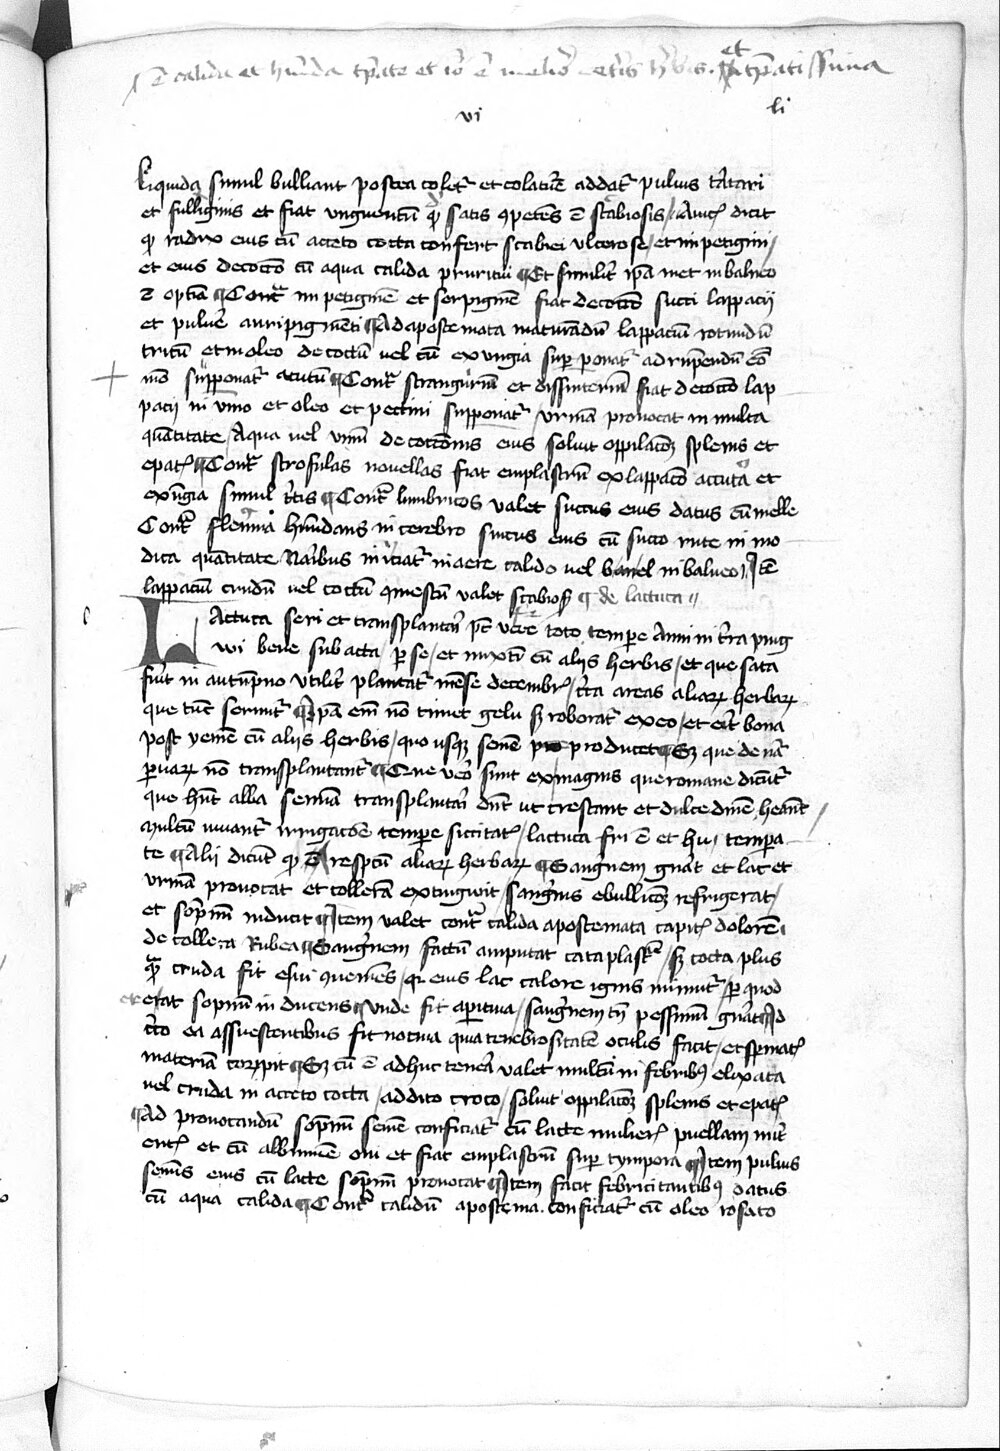 est calida et humida temperate et ideo est melior ceteris herbis. et temperatissima
vi li
Liquida simul bulliant postea coletur et colature addatur pulvis tartari
et fulliginis et fiat unguentum quod satis competens est scabiosis / Avicen dicit
quod radix eius cum aceto cocta confert scabiei ulcerose / et impetigini /
et eius decoctio cum aqua calida pruritui ¶ Et similiter ipsa met in balneo
est optima ¶ Contra impetiginem et serpiginem fiat decoctio succi lappacii
et pulvere auripigmenti ¶ Ad apostemata maturandum lappacium rotundum
tritum et in oleo decoctum vel cum exungia superponatur ad rumpendum eodem
modo supponatur acutum ¶ Contra stranguriam et dissinteriam fiat decoctio lap
pacii in vino et oleo et pectini supponatur / urinam provocat in multa
quantitate / Aqua vel vinum decoctionis eius solvit oppilacionem splenis et
epatis ¶ Contra strofulas novellas fiat emplastrum ex lappacio accuta et
exungia simul tritis ¶ Contra lumbricos valet succus eius datus cum melle
Contra flemma humidans in cerebro succus eius cum succo rute in mo
dica quantitate Naribus iniciatur in aere calido vel in balneo / Item
lappacium crudum vel coctum comestum valet scabiosis ¶ de lactuca //
LActuca seri et transplantari potest vere toto tempore Anni in terra ping
wi bene subacta / per se / et mixtim cum aliis herbis / et que sata
fuerit in autumpno utiliter plantatur mense decembris / circa areas aliarum herbarum
que tunc seruntur ¶ Ipsa enim non timet gelu sed roboratur ex eo / et erit bona
post yemem cum aliis herbis / quo usque semen producet ¶ Sed que de natura
parvarum non transplantantur ¶ Que vero sunt ex magnis que romane dicuntur
que habent alba semina transplantari debent ut crescant et dulcedinem habeant /
Multum iuvantur irrigacione tempore siccitatis / lactuca frigida est et humida tempera
te ¶ Alii dicunt quod est respectu aliarum herbarum ¶ Sanguinem generat et lac et
urinam provocat et colleram extingwit / sanguinis ebullicionem refrigerat /
et sopnum inducit ¶ Item valet contra calida apostemata capitis dolorem
de collera Rubea ¶ Sanguinem factum amputat cataplasmata / sed cocta plus
quam cruda fit esui conveniens / quia eius lac calore ignis minuitur / per quod
erat sopnum inducens ¶ unde fit aperitiva / sanguinem tamen pessimum generat ¶ Id
circo ea assuescentibus fit nociva quia tenebrositatem oculis facit / et spermatis
materiam corrumpit ¶ Sed cum est adhuc tenera valet multum in febribus elixata
vel cruda in acceto cocta / addito croco / solvit oppilacionem splenis et epatis
¶ Ad provocandum sopnum semen conficiatur cum lacte mulieris puellam nutri
entis et cum albumine ovi et fiat emplastrum super tympora ¶ Item pulvis
seminis eius cum lacte sopnum provocat ¶ Item facit febricitantibus datus
cum aqua calida ¶ Contra calidum apostema conficiatur cum oleo rosato